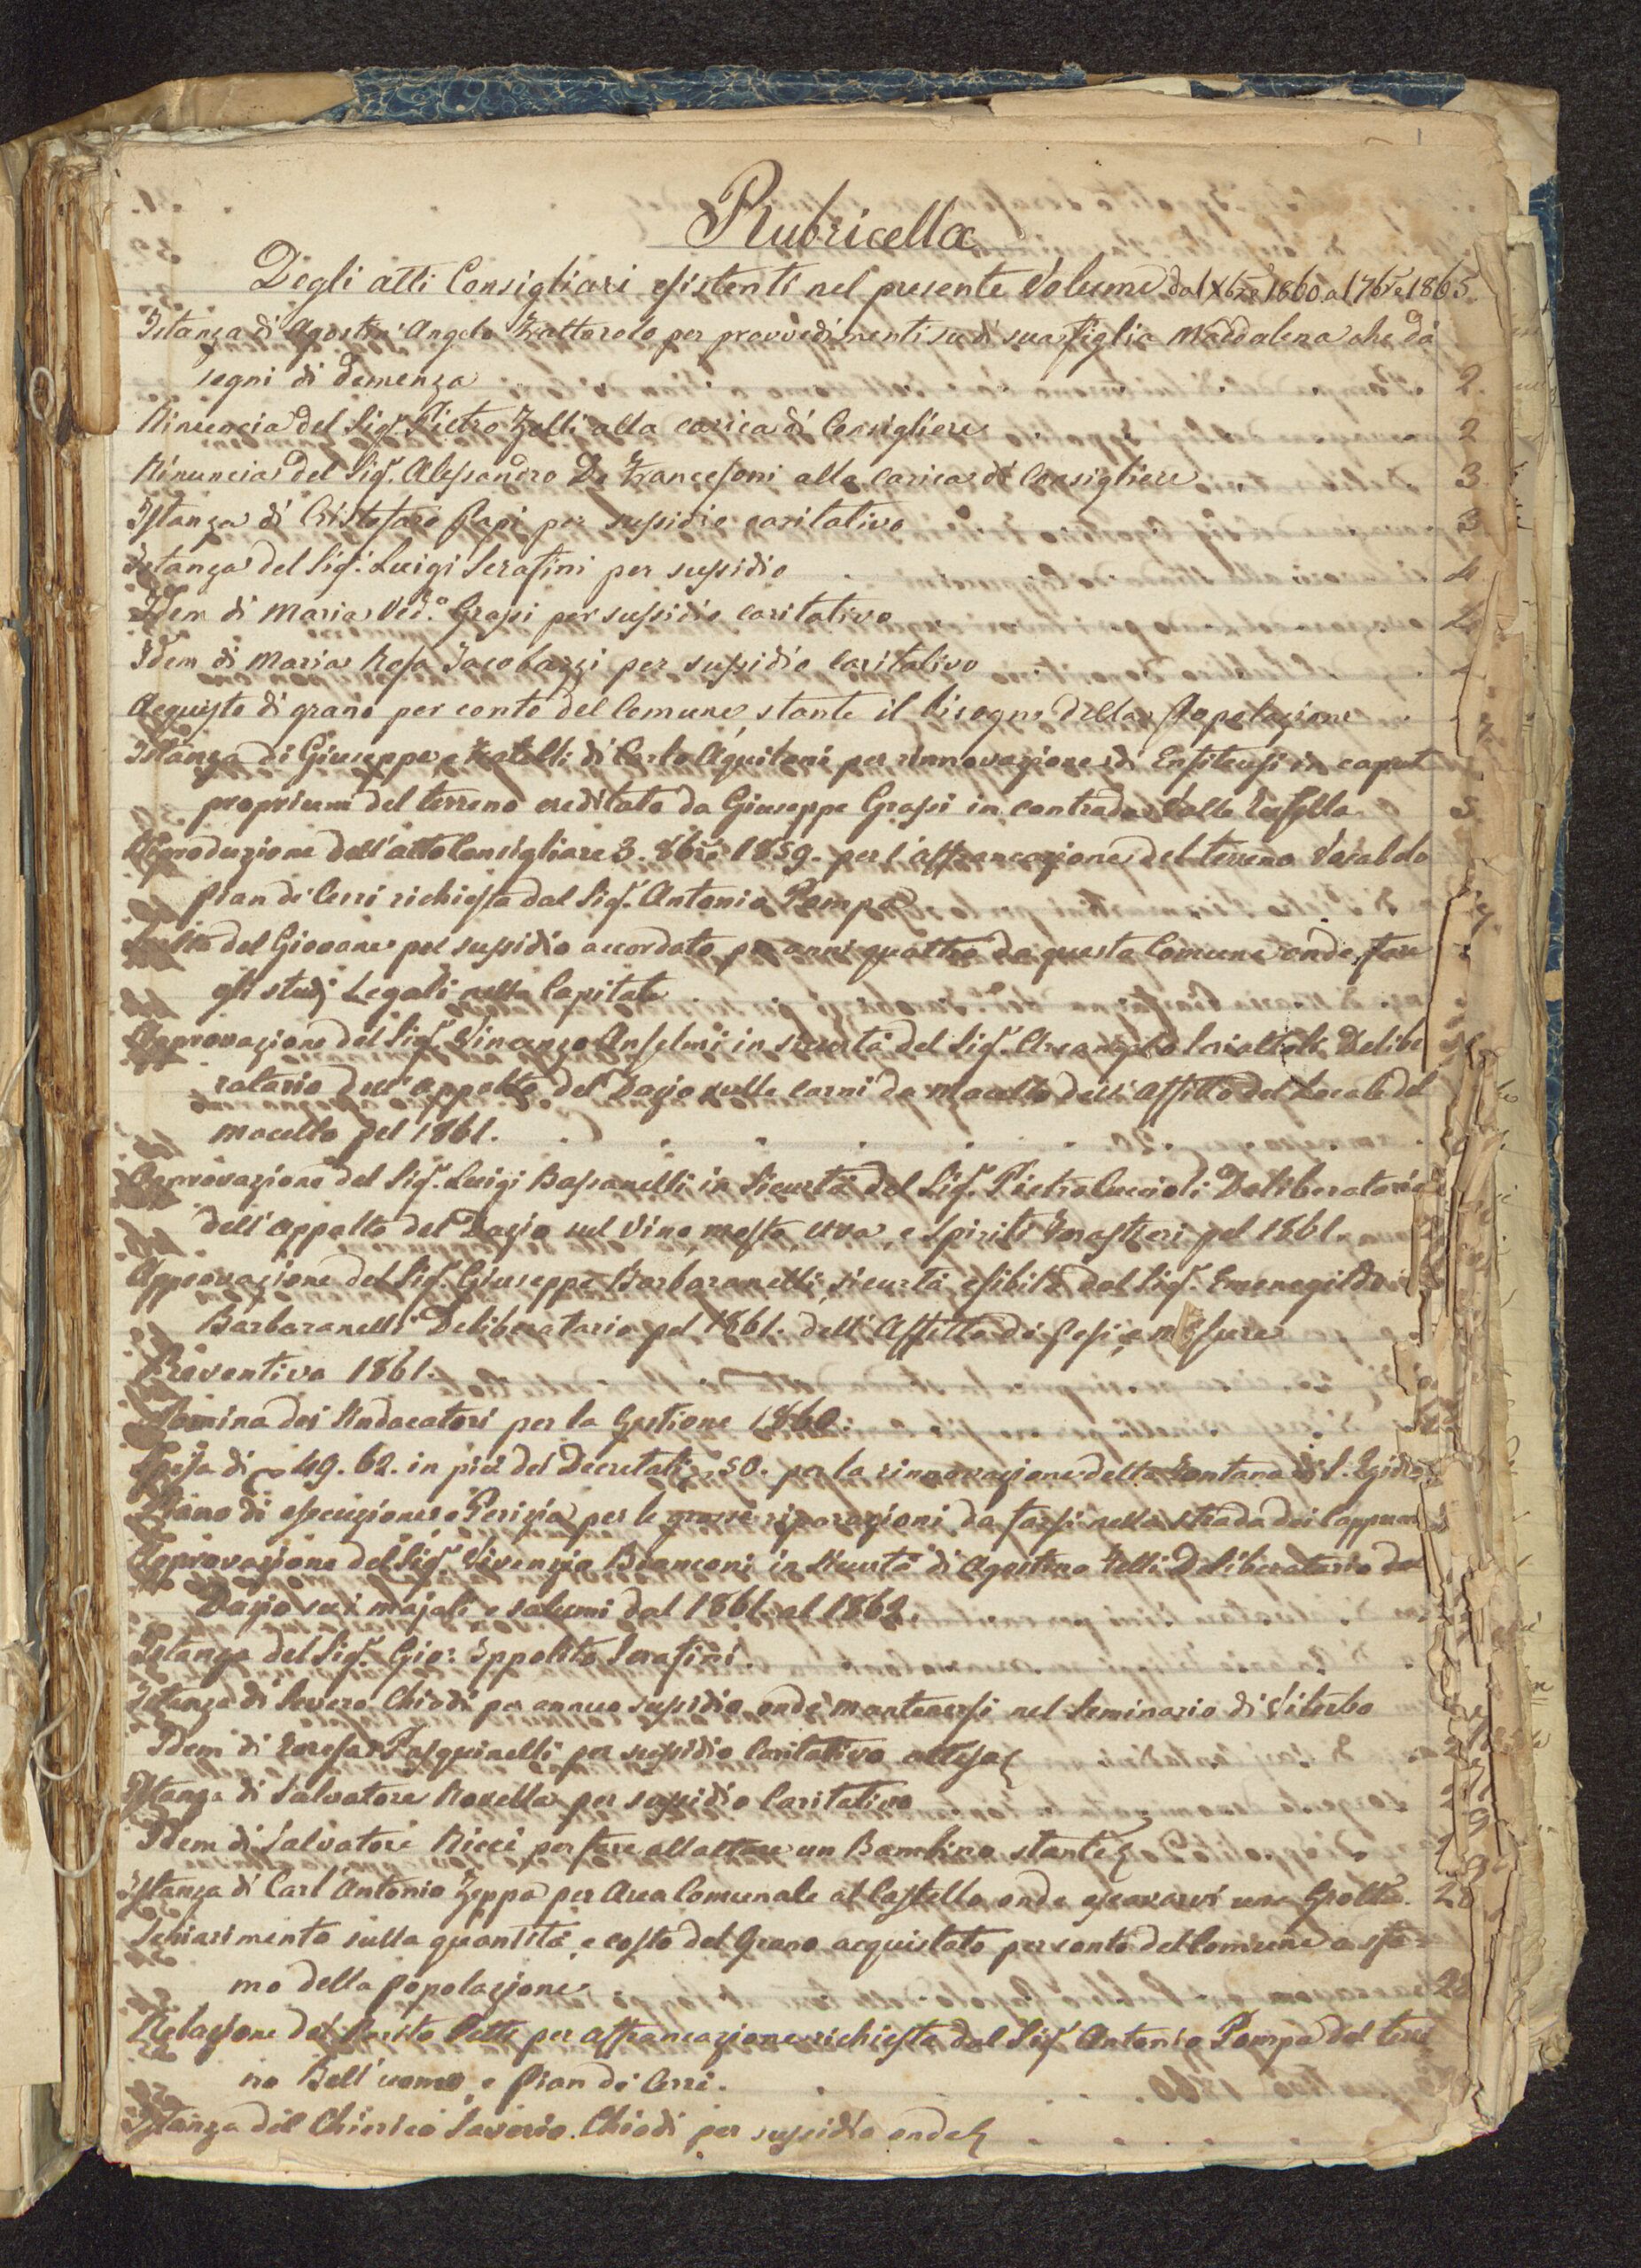 Rubricella
Degli atti Consigliari esistenti nel presente Volume dal Xbre 1860 al 7bre 1865.
Istanza di Agostin' Angelo Trattorolo per provvedimenti su di sua figlia Maddalena che dà
segni di demenza 2.
Rinuncia del Sigr. Pietro Zelli alla carica di Consigliere 2
Rinuncia del Sigr. Alessandro De Francesoni alla carica di Consigliere 3
Istanza di Cristofaro Papi per sussidio caritativo 3
Istanza del Sigr. Luigi Serafini per sussidio 4
Idem di Maria Ved.a Grassi per sussidio caritativo 4
Idem di Maria Rosa Jacobazzi per sussidio caritativo
Acquisto di grano per conto del Comune, stante il bisogno della Popolazione
Istanza di Giuseppe e Fratelli di Carlo Aquilani per rinnovazione di Enfiteusi in caput
proprium del terreno ereditato da Giuseppe Grassi in contrada Valle 5
Riproduzione dell'atto Consigliare 3. 8bre 1859. per l'affrancazione del terreno Vocabolo
Pian di Cerri richiesta dal Sigr. Antonio Pompa
del Giovane pel sussidio accordato per anni quattro da questo Comune onde fare
gli studj Legali nella Capitale
Approvazione del Sigr. Vincenzo Anselmi in sicurtà del Sigr. Arcangelo Delibe
ratario dell'appalto del Dazio sulle carni da macello dell'Affitto del Locale del
macello pel 1861.
Approvazione del Sigr. Luigi Bassanelli in Sicurtà del Sigr. Pietro Cuccioli Deliberatario
dell'appalto del Dazio sul Vino, mosto, uva, e Spiriti Forastieri pel 1861.
Approvazione del Sigr. Giuseppe Barbaranelli, sicurtà esibita dal Sigr. Emenegildo
Barbaranelli Deliberatario pel 1861. dell'Affitto di pesi, e misure
Preventivo 1861.
Nomina dei Sindacatori per la Gestione 1860.
Spesa di 49. 62. in più dei Decretati 50. per la rinnovazione della Fontana di S. Egidio
Piano di esecuzione e Perizia per le grosse riparazioni da farsi nella strada dei Cappuccini
Approvazione del Sigr. Vivenzio Branconi in Sicurtà di Agostino Felli Deliberatario del
Dazio sui majali e salumi dal 1861. al 1862.
Istanza del Sigr. Gio: Ippolito Serafini.
Istanza di Severo Chiodi per annuo sussidio onde mantenersi nel Seminario di Viterbo
Idem di Teresa Pasquinelli per sussidio Caritativo attesa
Istanza di Salvatore Rovella per sussidio Caritativo
Idem di Salvatore Ricci per fare allattare un Bambino stante
Istanza di Carl'Antonio Zeppa per Area Comunale al Castello onde escavarvi una Grotta. 28
Schiarimento sulla quantità, e costo del Grano acquistato per conto del Comune a sfa=
mo della popolazione 28
Relazione del Perito Petti per affrancazione richiesta dal Sigr. Antonio Pompa del terre
no Bell'uomo, e Pian di Cerri.
Istanza del Chierico Saverio Chiodi per sussidio onde